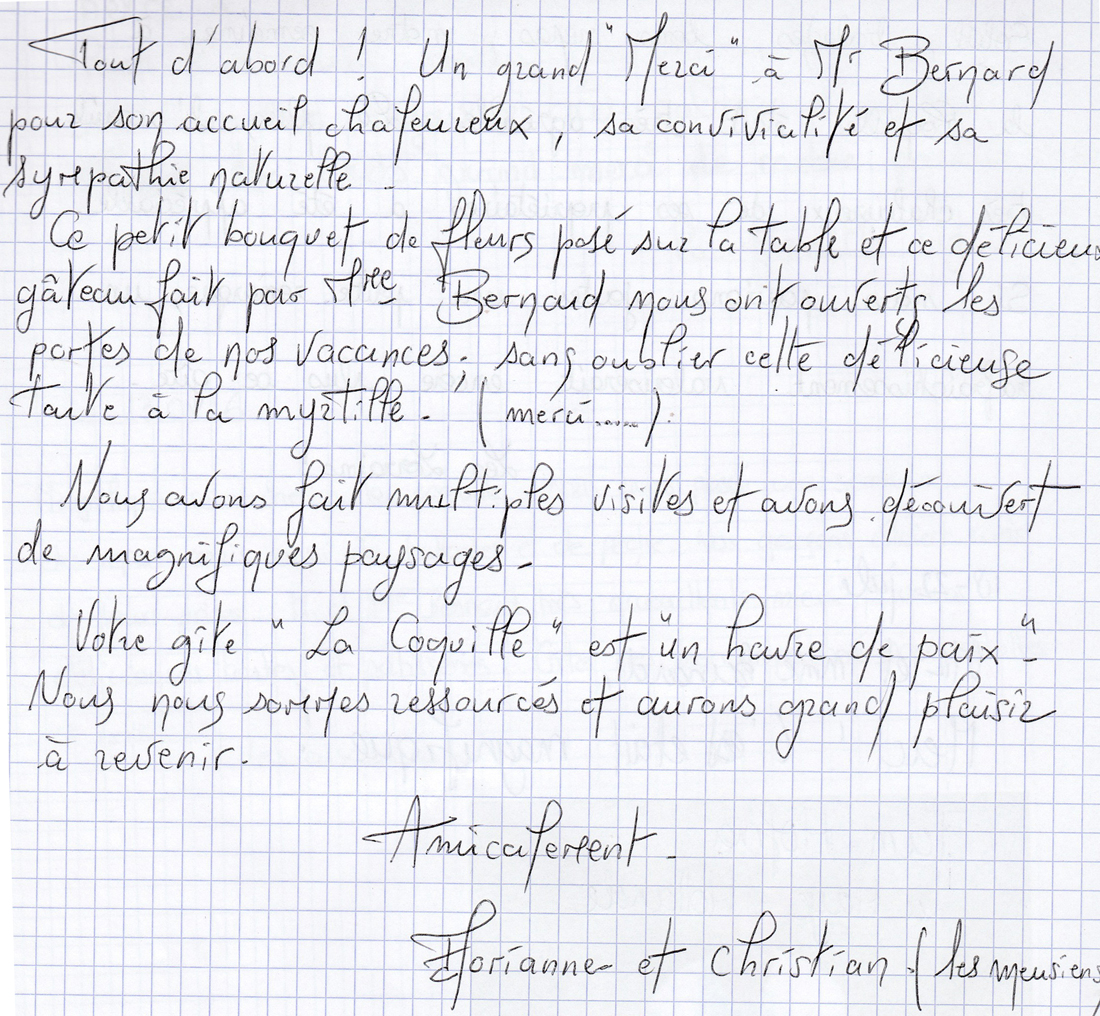 Tout d'abord ! Un grand "Merci" à Mr Bernard
pour son accueil chaleureux, sa convivialité et sa
sympathie naturelle.
Ce petit bouquet de fleurs posé sur la table et ce délicieux
gâteau fait par Mme Bernard nous ont ouverts les
portes de nos vacances; sans oublier cette délicieuse
tarte à la myrtille. (merci......).
Nous avons fait multiples visites et avons découvert
de magnifiques paysages.
Votre gîte "La Coquille" est "un havre de paix".
Nous nous sommes ressourcés et aurons grand plaisir
à revenir.
Amicalement.
Florianne et Christian. (les meusiens